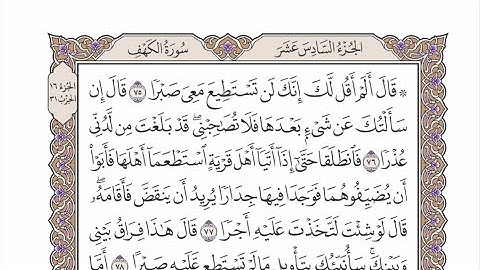 الجُزْءُ السَّادِسَ عَشَرَ
سُورَةُ الكَهْفِ
الجُزءُ ١٦
الحِزْبُ ٣١
۞ قَالَ أَلَمْ أَقُل لَّكَ إِنَّكَ لَن تَسْتَطِيعَ مَعِيَ صَبْرًا ٧٥ قَالَ إِن
سَأَلْتُكَ عَن شَىْءٍۭ بَعْدَهَا فَلَا تُصَٰحِبْنِى ۖ قَدْ بَلَغْتَ مِن لَّدُنِّى
عُذْرًا ٧٦ فَٱنطَلَقَا حَتَّىٰٓ إِذَآ أَتَيَآ أَهْلَ قَرْيَةٍ ٱسْتَطْعَمَآ أَهْلَهَا فَأَبَوْا۟
أَن يُضَيِّفُوهُمَا فَوَجَدَا فِيهَا جِدَارًا يُرِيدُ أَن يَنقَضَّ فَأَقَامَهُۥ ۖ
قَالَ لَوْ شِئْتَ لَتَّخَذْتَ عَلَيْهِ أَجْرًا ٧٧ قَالَ هَٰذَا فِرَاقُ بَيْنِى
وَبَيْنِكَ ۚ سَأُنَبِّئُكَ بِتَأْوِيلِ مَا لَمْ تَسْتَطِع عَّلَيْهِ صَبْرًا ٧٨ أَمَّا